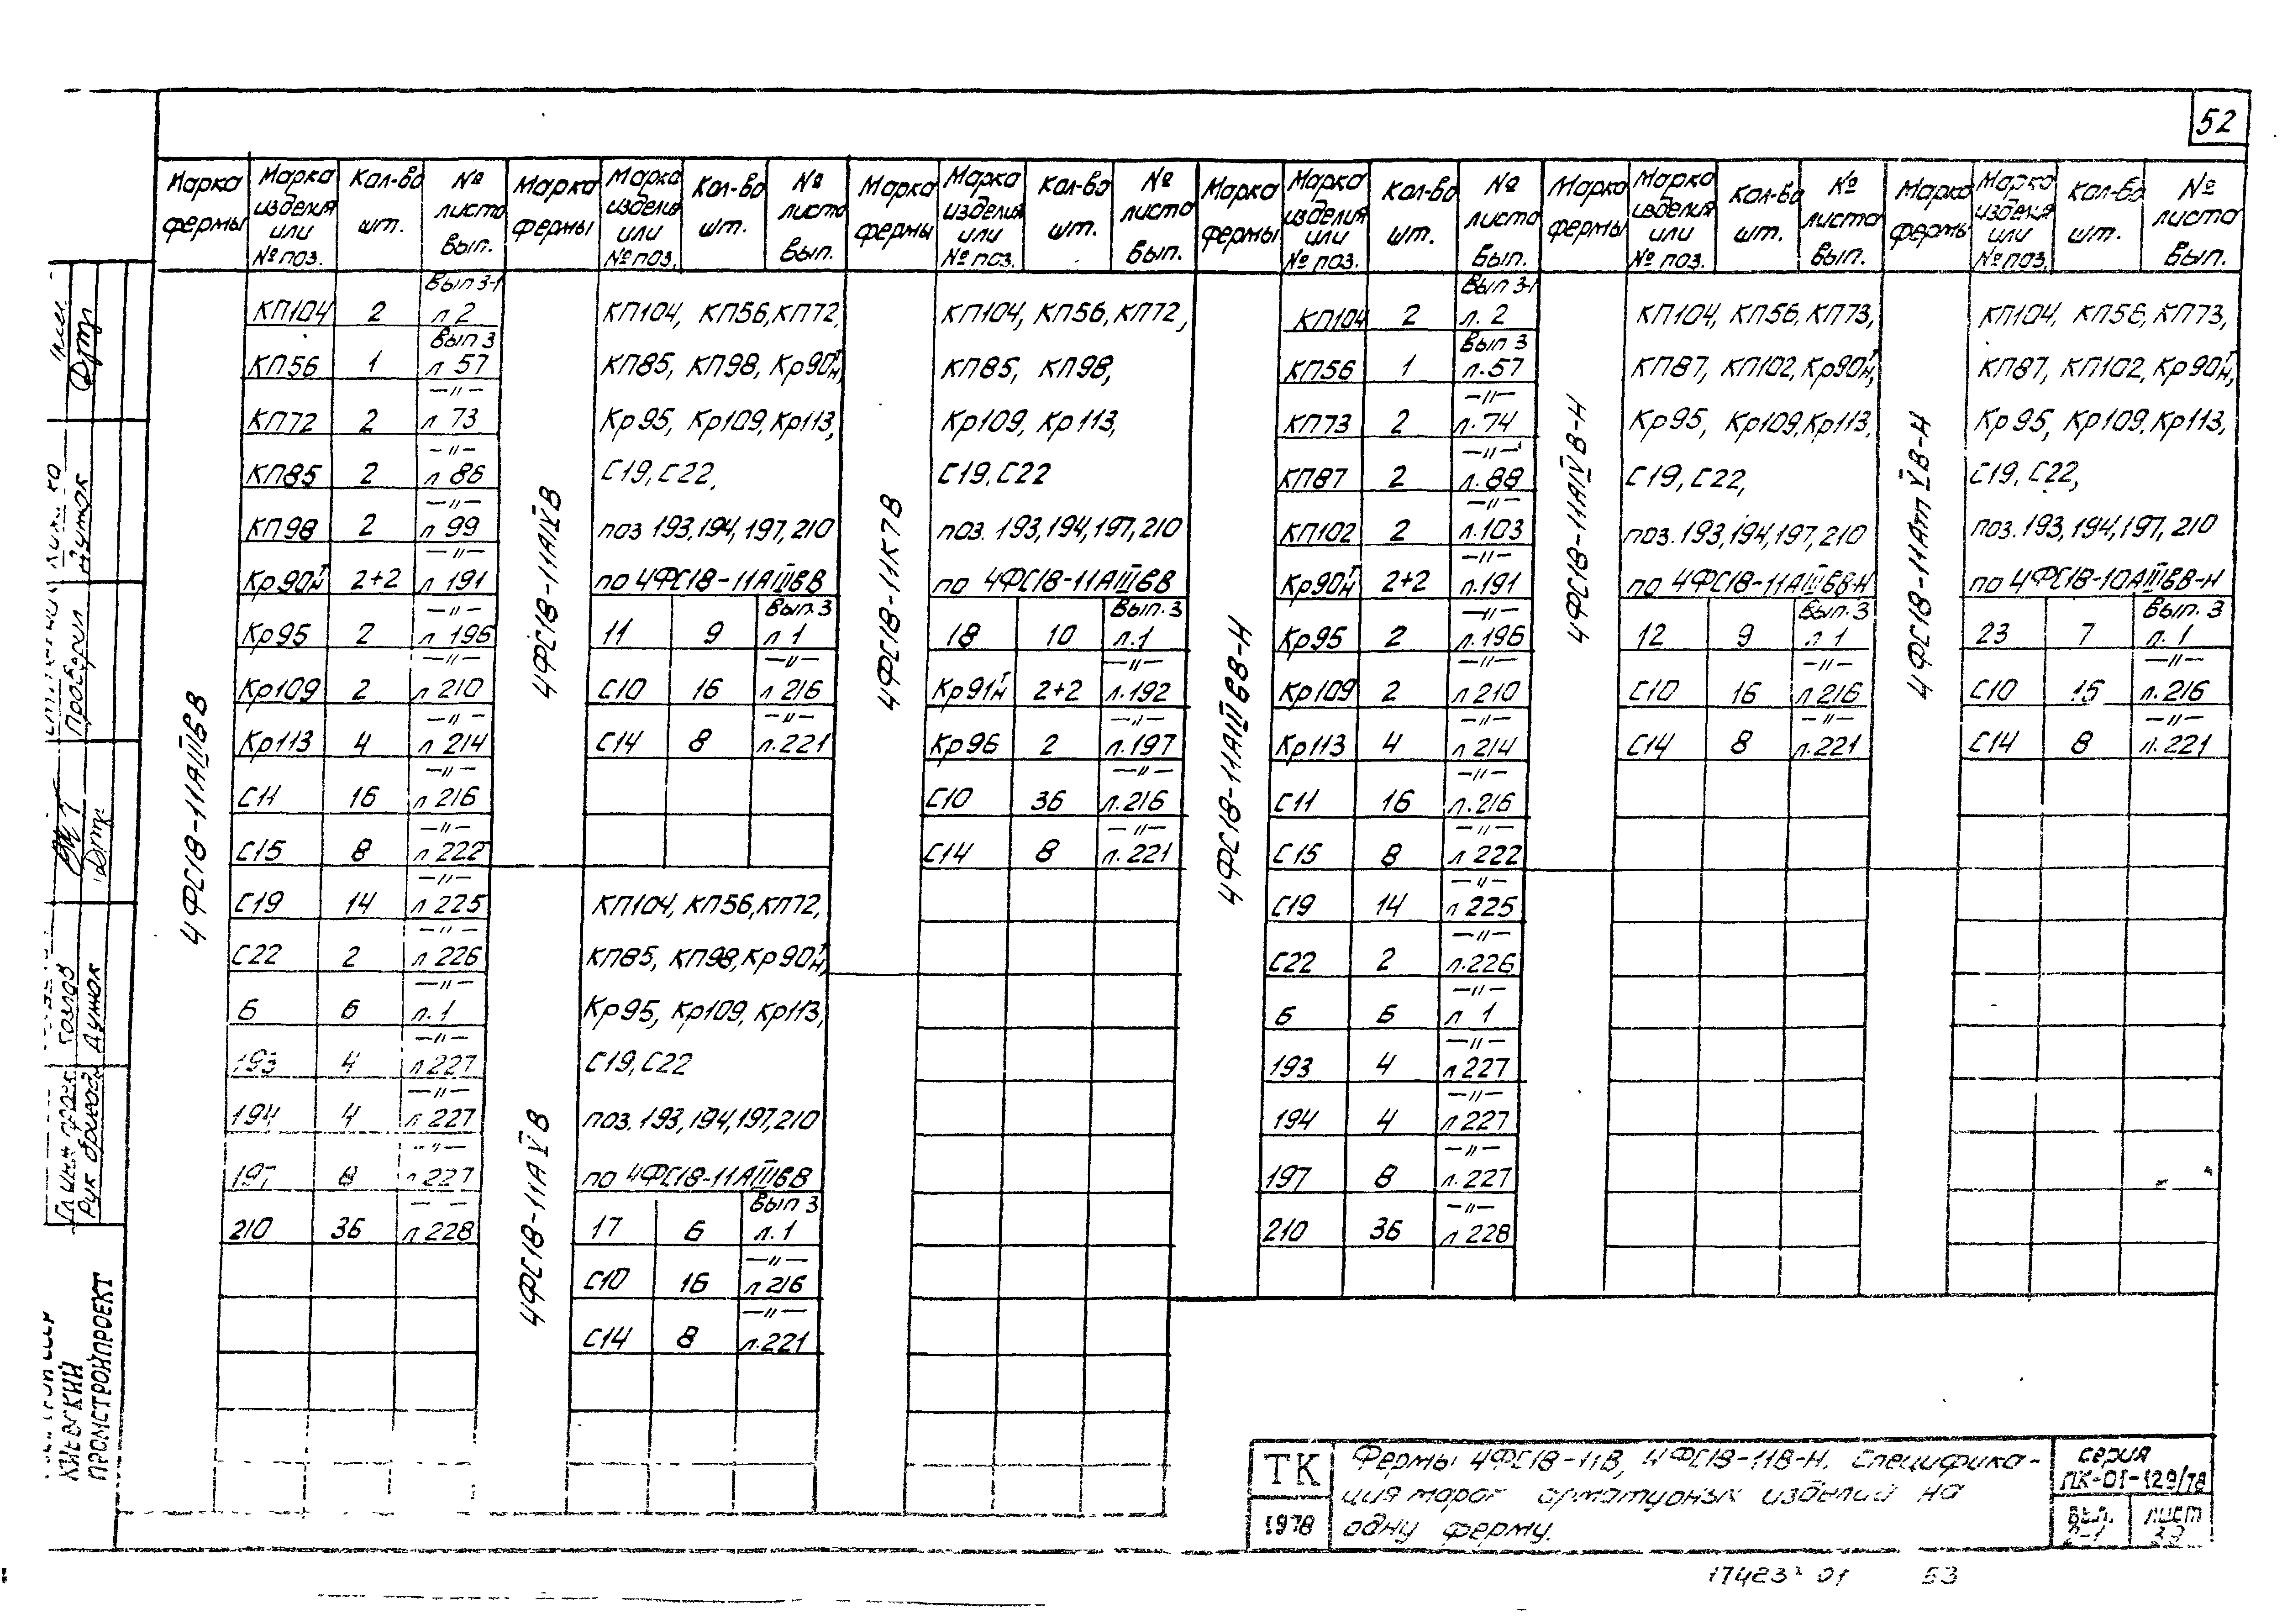 52
Марка фермы | Марка изделия или № поз. | Кол-во шт. | № листа Вып.
4ФС18-11АIIIвВ
КП104 2 Вып 3-1 л 2
КП56 1 Вып 3 л 57
КП72 2 —"— л 73
КП85 2 —"— л 86
КП98 2 —"— л 99
Кр90т/н 2+2 —"— л 191
Кр95 2 —"— л 196
Кр109 2 —"— л 210
Кр113 4 —"— л 214
С11 16 —"— л 216
С15 8 —"— л 222
С19 14 —"— л 225
С22 2 —"— л 226
6 6 —"— л.1
193 4 —"— л 227
194 4 —"— л 227
197 8 —"— л 227
210 36 — — л 228
Марка фермы | Марка изделия или № поз. | Кол-во шт. | № листа Вып.
4ФС18-11АIVВ
КП104, КП56, КП72,
КП85, КП98, Кр90т/н,
Кр95, Кр109, Кр113,
С19, С22,
поз 193, 194, 197, 210
по 4ФС18-11АIIIвВ
11 9 Вып. 3 л 1
С10 16 —"— л 216
С14 8 —"— л.221
4ФС18-11АVВ
КП104, КП56, КП72,
КП85, КП98, Кр90т/н,
Кр95, Кр109, Кр113,
С19, С22
поз. 193, 194, 197, 210
по 4ФС18-11АIIIвВ
17 6 Вып 3 л. 1
С10 16 —"— л 216
С14 8 —"— л.221
Марка фермы | Марка изделия или № поз. | Кол-во шт. | № листа Вып.
4ФС18-11К7В
КП104, КП56, КП72,
КП85, КП98,
Кр109, Кр113,
С19, С22
поз. 193, 194, 197, 210
по 4ФС18-11АIIIвВ
18 10 Вып. 3 л.1
Кр91т/н 2+2 —"— л.192
Кр96 2 —"— л.197
С10 36 —"— л.216
С14 8 —"— л. 221
Марка фермы | Марка изделия или № поз. | Кол-во шт. | № листа Вып.
4ФС18-11АIIIвВ-Н
КП104 2 Вып 3-1 л. 2
КП56 1 Вып 3 л.57
КП73 2 —"— л.74
КП87 2 —"— л.88
КП102 2 —"— л.103
Кр90т/н 2+2 —"— л.191
Кр95 2 —"— л.196
Кр109 2 —"— л 210
Кр113 4 —"— л 214
С11 16 —"— л.216
С15 8 —"— л 222
С19 14 —"— л 225
С22 2 —"— л.226
6 6 —"— л 1
193 4 —"— л 227
194 4 —"— л 227
197 8 —"— л.227
210 36 —"— л 228
Марка фермы | Марка изделия или № поз. | Кол-во шт. | № листа Вып.
4ФС18-11АIVВ-Н
КП104, КП56, КП73,
КП87, КП102, Кр90т/н,
Кр95, Кр109, Кр113,
С19, С22,
поз. 193, 194, 197, 210
по 4ФС18-11АIIIвВ-Н
12 9 Вып. 3 л 1
С10 16 —"— л 216
С14 8 —"— л.221
Марка фермы | Марка изделия или № поз. | Кол-во шт. | № листа Вып.
4ФС18-11АтVВ-Н
КП104, КП56, КП73,
КП87, КП102, Кр90т/н,
Кр95, Кр109, Кр113,
С19, С22,
поз. 193, 194, 197, 210
по 4ФС18-10АIIIвВ-Н
23 7 Вып. 3 л. 1
С10 16 —"— л.216
С14 8 —"— л. 221
Проверил
Дунюк
Козлов
Гл инж проек
Рук бригады Дунюк
КИЕВСКИЙ
ПРОМСТРОЙПРОЕКТ
ТК
1978
Фермы 4ФС18-11В, 4ФС18-11В-Н. Специфика-
ция марок арматурных изделий на
одну ферму.
серия
ПК-01-129/78
Вып. 2-1
лист
17423 01 53